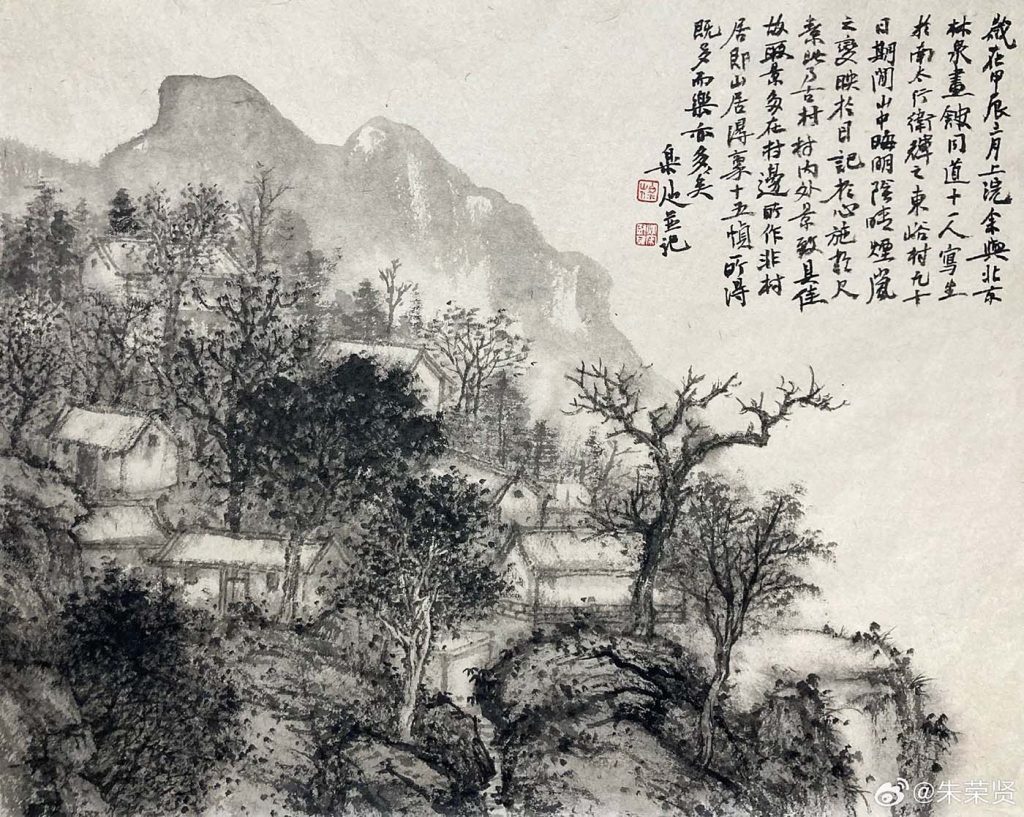 歲在甲辰三月上浣余與北京
林泉畫館同道十一人寫生
於南太行衛輝之東峪村九十
日期間山中晦明陰晴煙嵐
之變映於目記於心施於尺
素此乃古村村內外景致具佳
故取景多在村邊所作非村
居即山居得稟十五幀所得
既多而樂亦多矣
並记
@朱荣贤